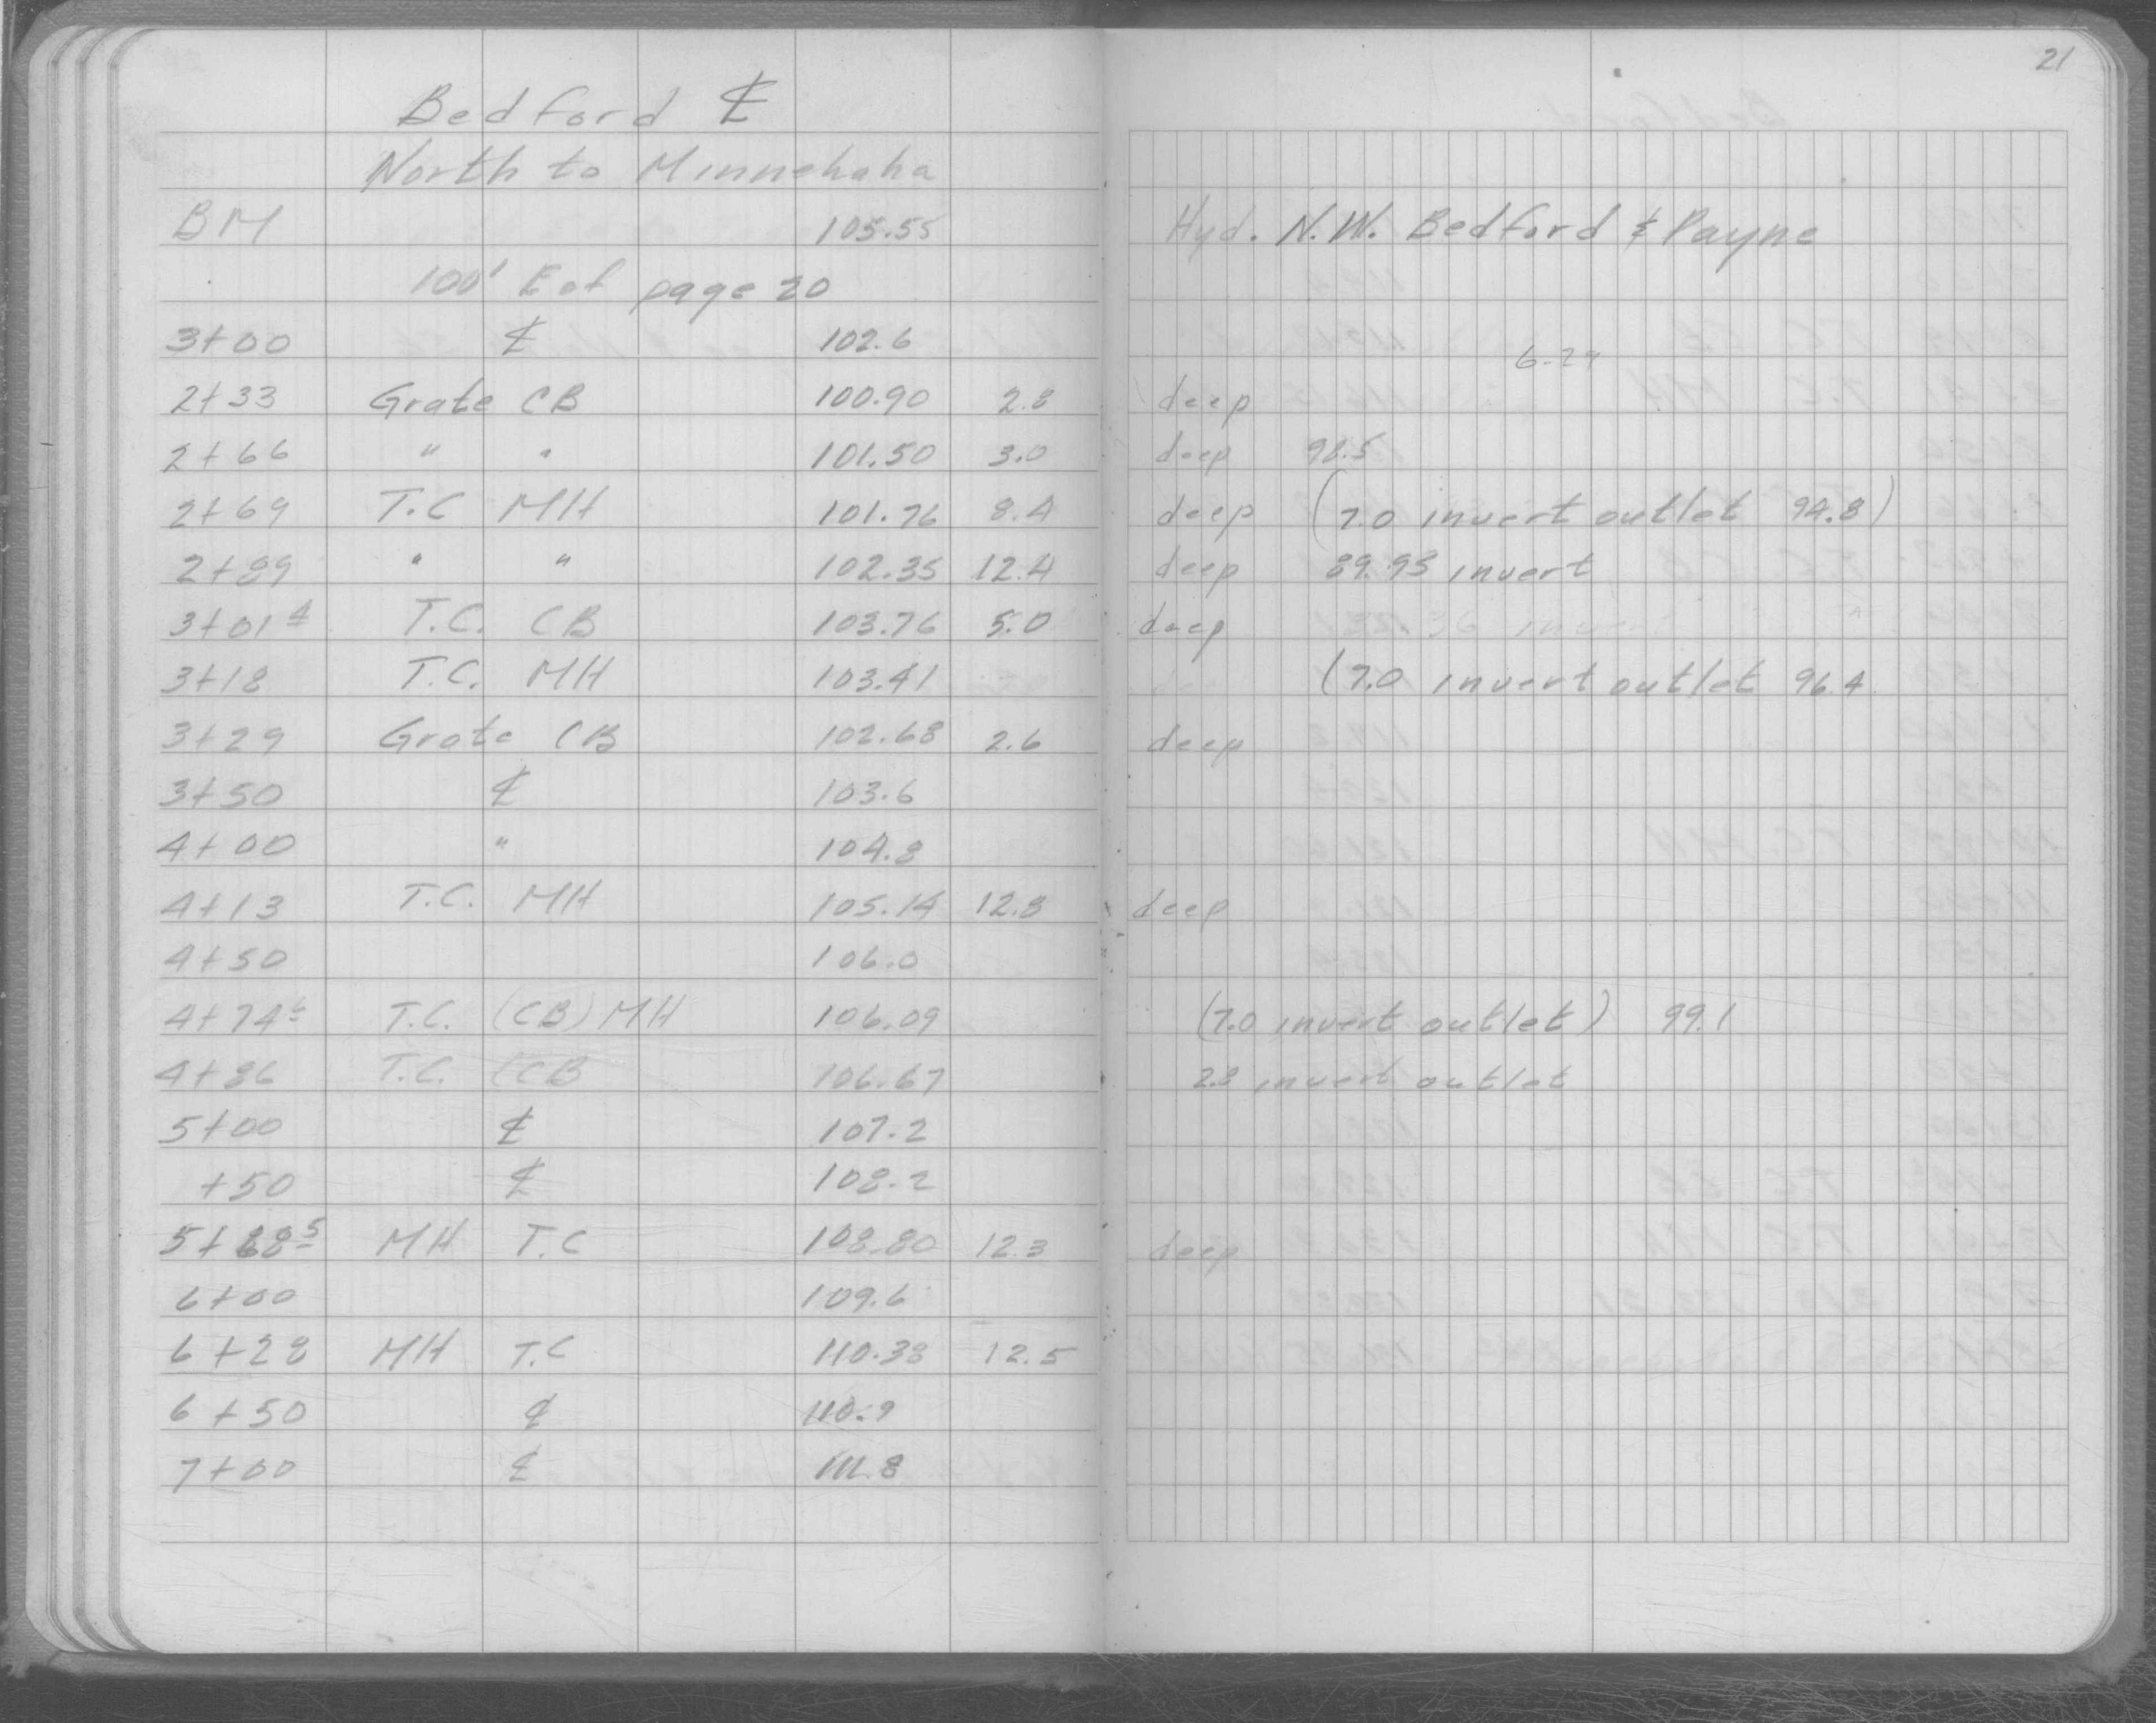 21
Bedford ℄
North to Minnehaha
BM 105.55 Hyd. N.W. Bedford & Payne
100' E of page 20
3+00 ℄ 102.6
6-29
2+33 Grate CB 100.90 2.8 deep
2+66 " " 101.50 3.0 deep 98.5
2+69 T.C MH 101.76 8.4 deep (7.0 invert outlet 94.8)
2+89 " " 102.35 12.4 deep 89.95 invert
3+01⁴ T.C. CB 103.76 5.0 deep
3+18 T.C. MH 103.41 (7.0 invert outlet 96.4
3+29 Grate CB 102.68 2.6 deep
3+50 ℄ 103.6
4+00 " 104.8
4+13 T.C. MH 105.14 12.8 deep
4+50 106.0
4+74⁶ T.C. (CB) MH 106.09 (7.0 invert outlet) 99.1
4+86 T.C. (CB 106.67 2.8 invert outlet
5+00 ℄ 107.2
+50 ℄ 108.2
5+88⁵ MH T.C 108.80 12.3 deep
6+00 109.6
6+28 MH T.C 110.38 12.5
6+50 ℄ 110.9
7+00 ℄ 111.8